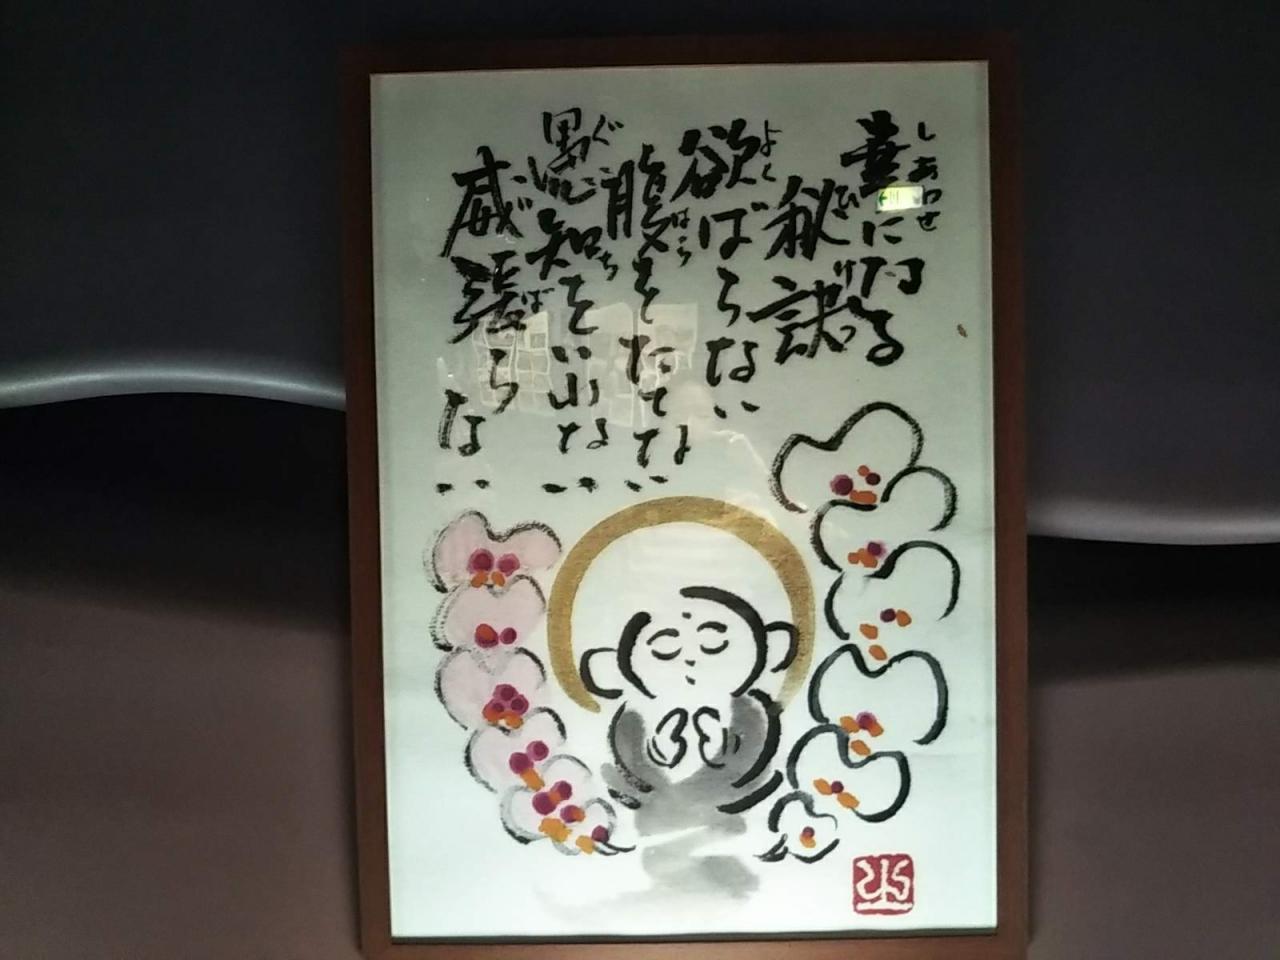 幸になる
秘訣
欲ばらない
腹をたてない
愚知をいわない
威張らない
しあわせ
ひ
けつ
よく
はら
ぐ
ち
い
ば